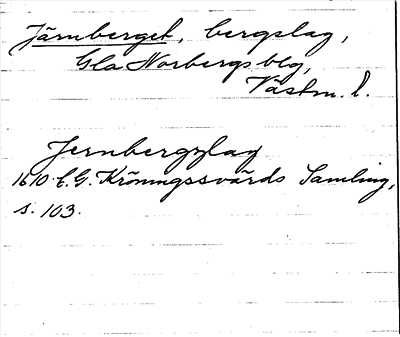 Järnberget, bergslag,
Gla Norbergs blg,
Västm. l.
Jernbergzlag
1610. C.G. Kröningssvärds Samling,
s. 103.